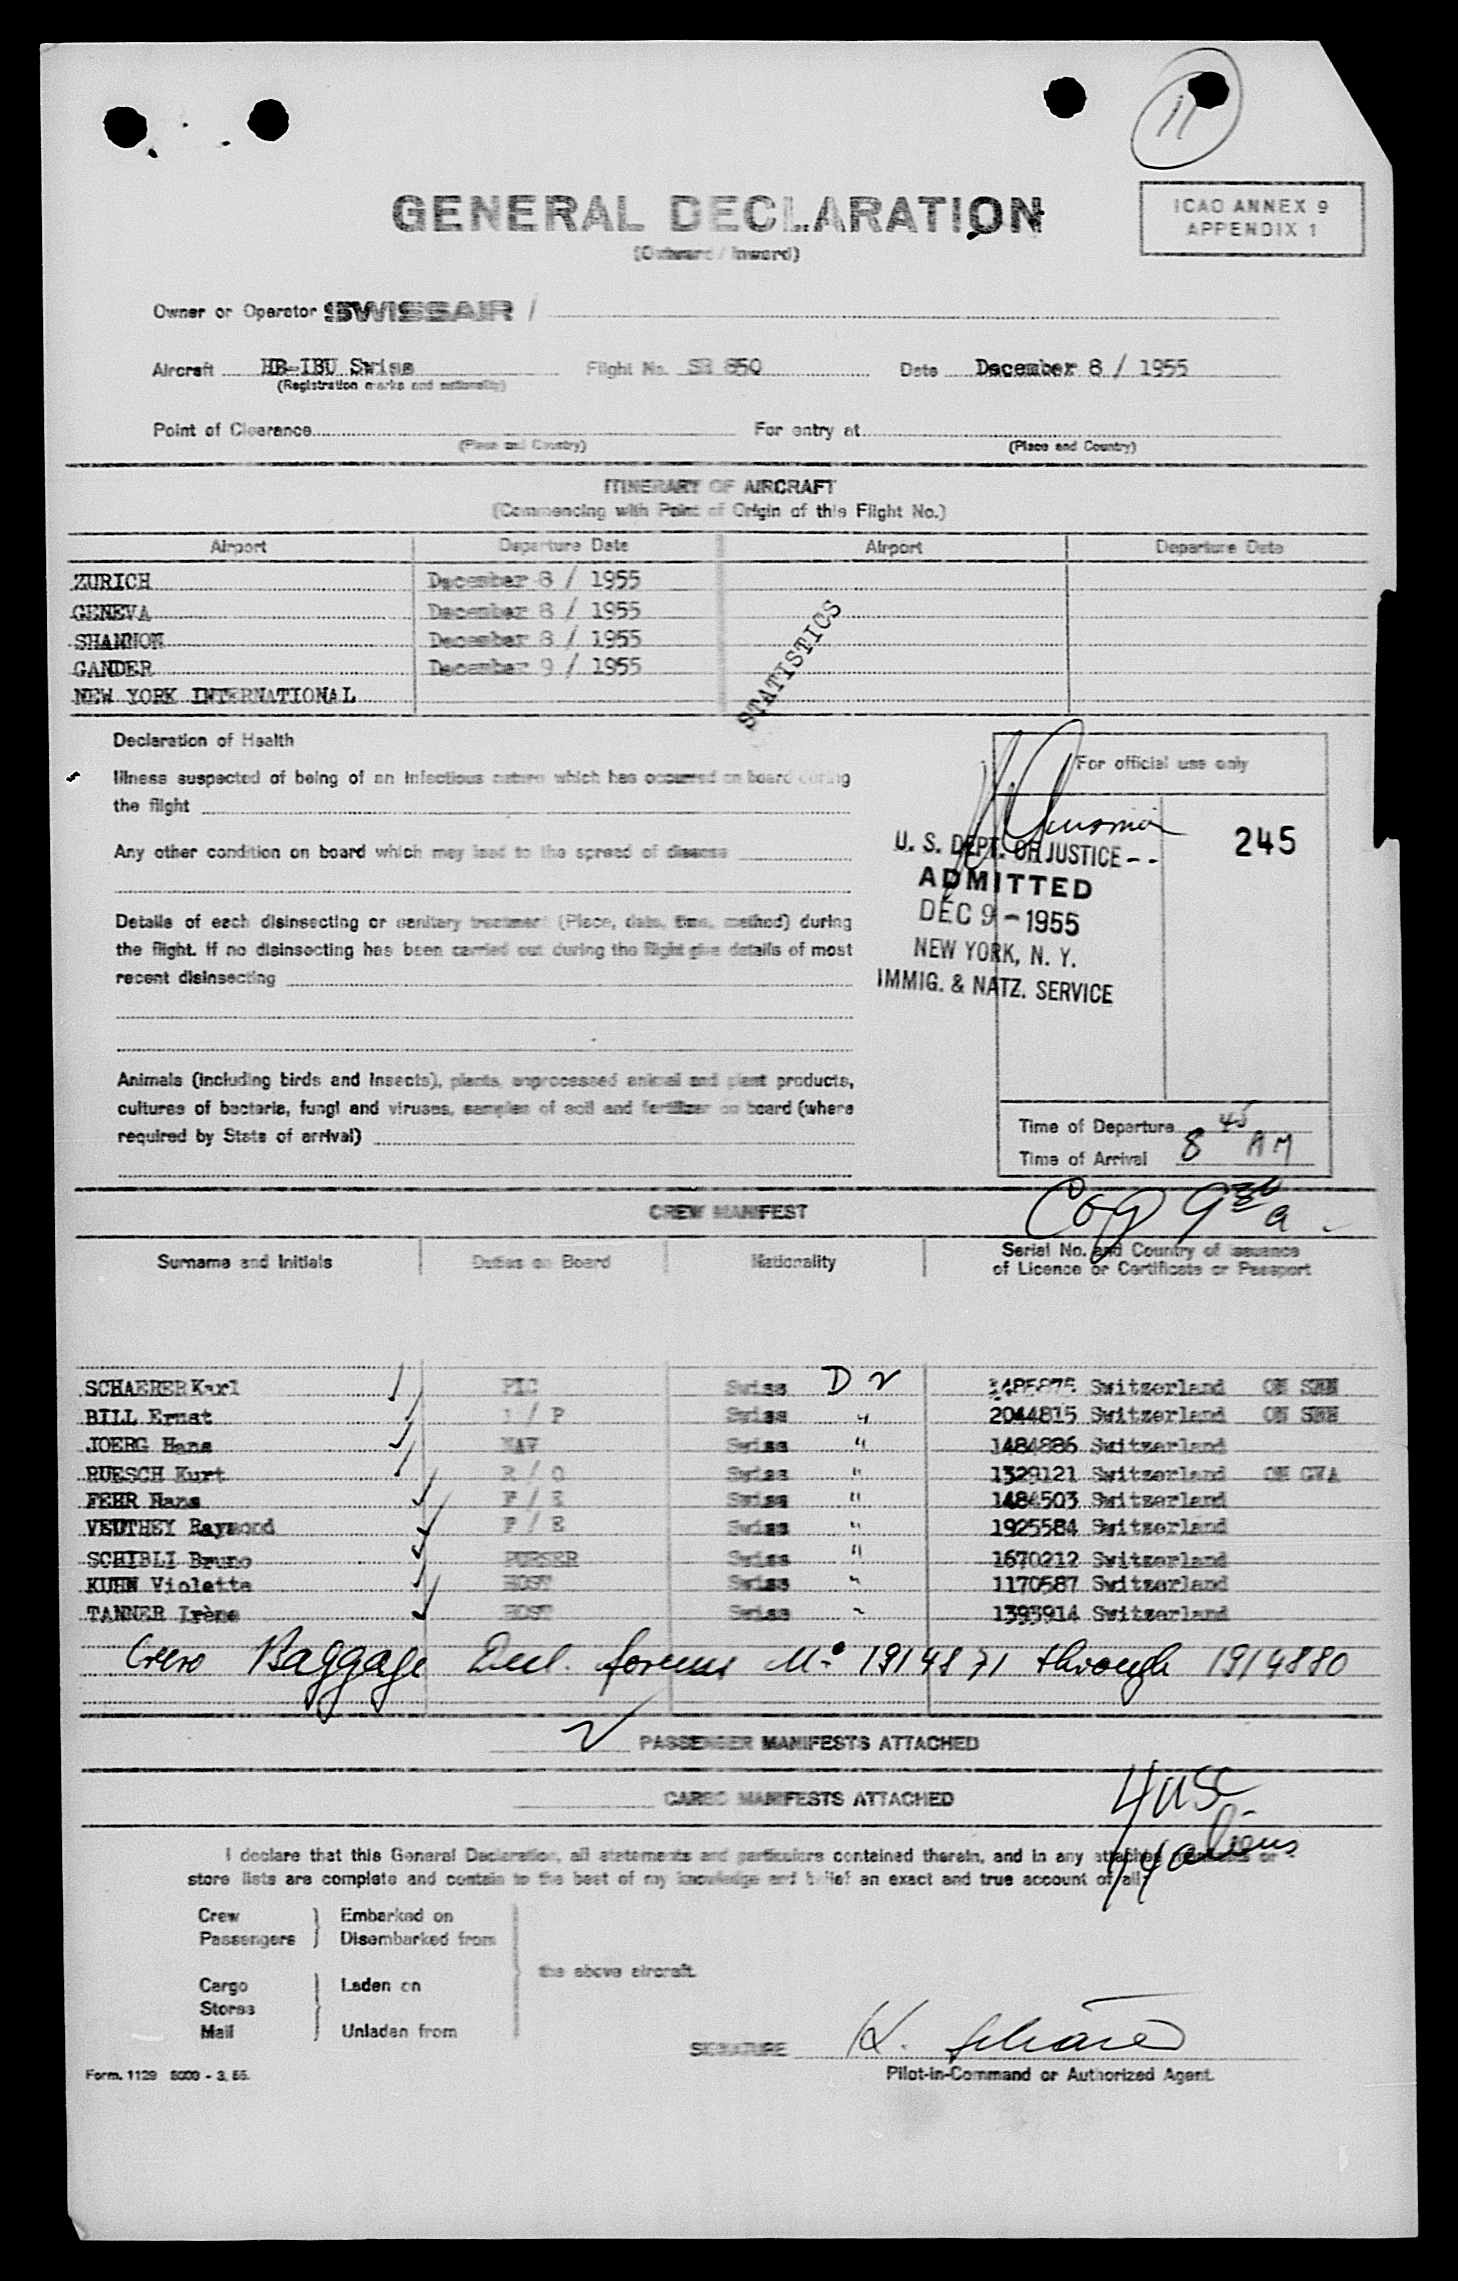 11
GENERAL DECLARATION
(Outward / Inward)
ICAO ANNEX 9
APPENDIX 1
Owner or Operator SWISSAIR /
Aircraft HB-IBU Swiss Flight No. SR 850 Date December 8 / 1955
(Registration marks and nationality)
Point of Clearance For entry at
(Place and Country) (Place and Country)
ITINERARY OF AIRCRAFT
(Commencing with Point of Origin of this Flight No.)
Airport Departure Date Airport Departure Date
ZURICH December 8 / 1955
GENEVA December 8 / 1955
SHANNON December 8 / 1955
GANDER December 9 / 1955
NEW YORK INTERNATIONAL
STATISTICS
Declaration of Health
Illness suspected of being of an infectious nature which has occurred on board during
the flight
Any other condition on board which may lead to the spread of disease
Details of each disinsecting or sanitary treatment (Place, date, time, method) during
the flight. If no disinsecting has been carried out during the flight give details of most
recent disinsecting
Animals (including birds and insects), plants, unprocessed animal and plant products,
cultures of bacteria, fungi and viruses, samples of soil and fertilizer on board (where
required by State of arrival)
For official use only
245
U. S. DEPT. OF JUSTICE - -
ADMITTED
DEC 9 - 1955
NEW YORK, N. Y.
IMMIG. & NATZ. SERVICE
Time of Departure
Time of Arrival 8 45 AM
CREW MANIFEST
Surname and Initials Duties on Board Nationality Serial No. and Country of issuance
of Licence or Certificate or Passport
SCHAERER Karl PIC Swiss D 2 1485875 Switzerland ON SNN
BILL Ernst / P Swiss " 2044815 Switzerland ON SNN
JOERG Hans NAV Swiss " 1484886 Switzerland
RUESCH Kurt R / O Swiss " 1329121 Switzerland ON GVA
FEHR Hans F / E Swiss " 1484503 Switzerland
VEUTHEY Raymond F / E Swiss " 1925584 Switzerland
SCHIBLI Bruno PURSER Swiss " 1670212 Switzerland
KUHN Violette HOST Swiss " 1170587 Switzerland
TANNER Irène HOST Swiss " 1393914 Switzerland
Crew Baggage Decl. forms No 1914871 through 1914880
2 PASSENGER MANIFESTS ATTACHED
CARGO MANIFESTS ATTACHED
4 USC
14 aliens
I declare that this General Declaration, all statements and particulars contained therein, and in any attached manifests or
store lists are complete and contain to the best of my knowledge and belief an exact and true account of all
Crew Embarked on
Passengers Disembarked from
the above aircraft.
Cargo Laden on
Stores
Mail Unladen from
SIGNATURE K. Schärer
Pilot-in-Command or Authorized Agent.
Form. 1129 5000 - 3. 55.